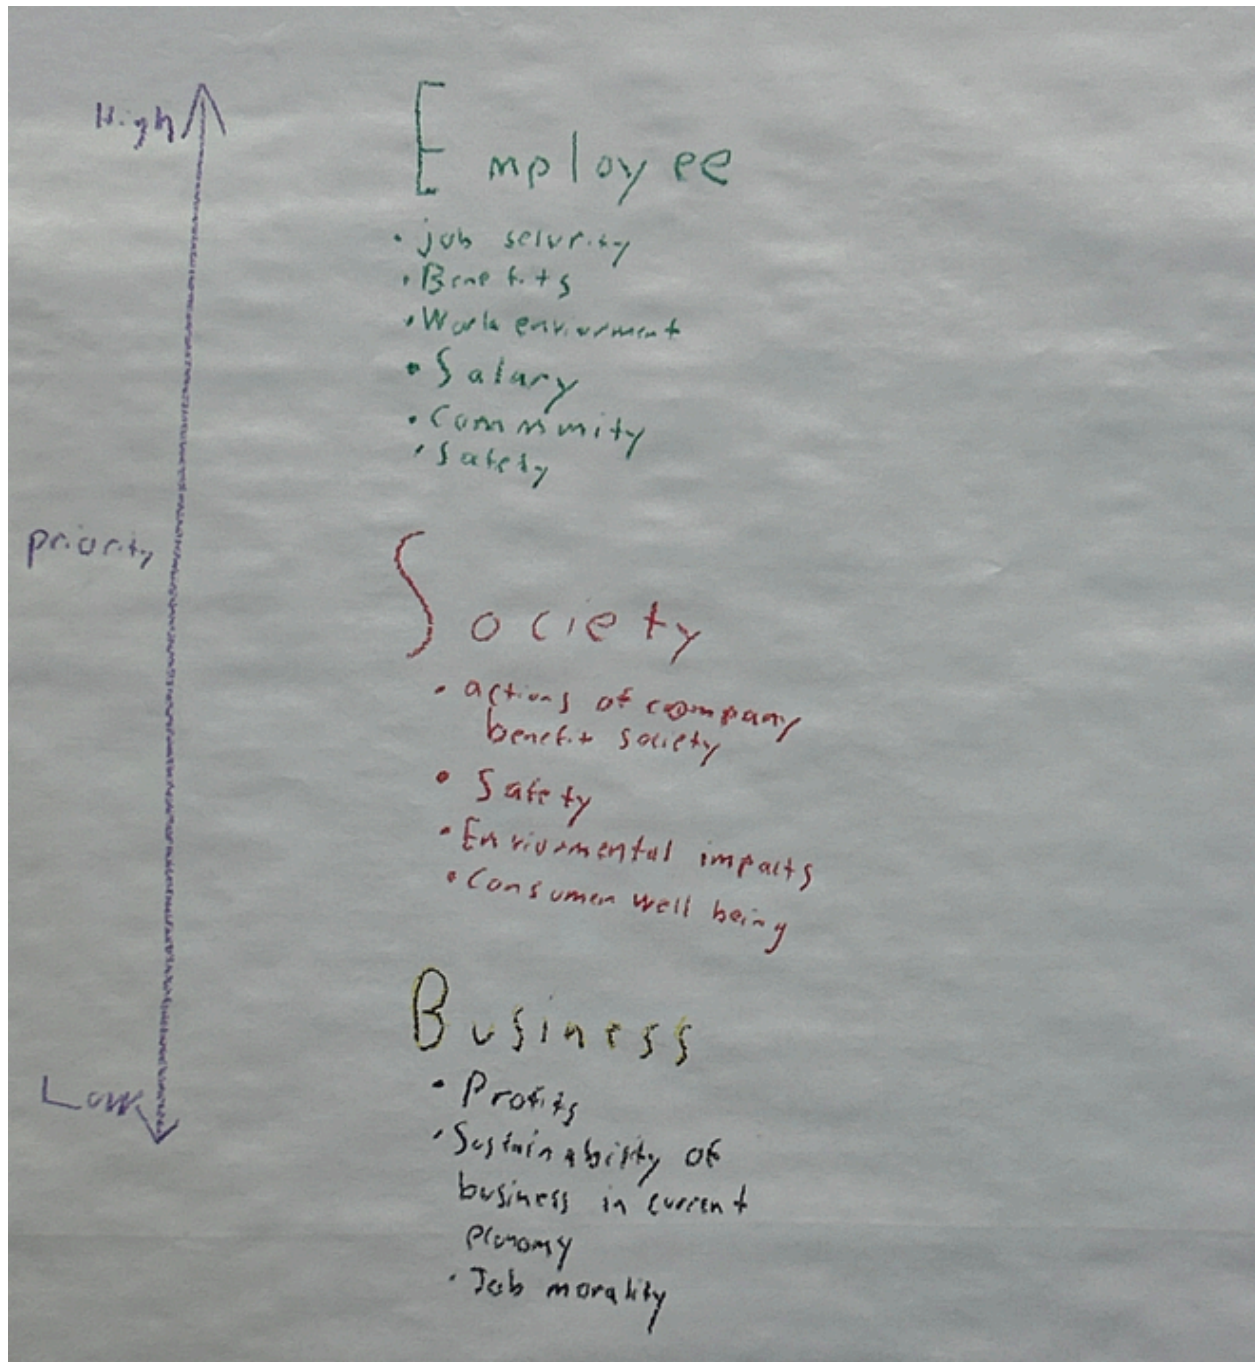 High
Employee
• job security
• Benefits
• Work enviorment
• Salary
• Community
• Safety
priority
Society
• actions of company
benefit society
• Safety
• Enviormental impacts
• Consumer well being
Business
Low
• Profits
• Sustainability of
business in current
economy
• Job morality